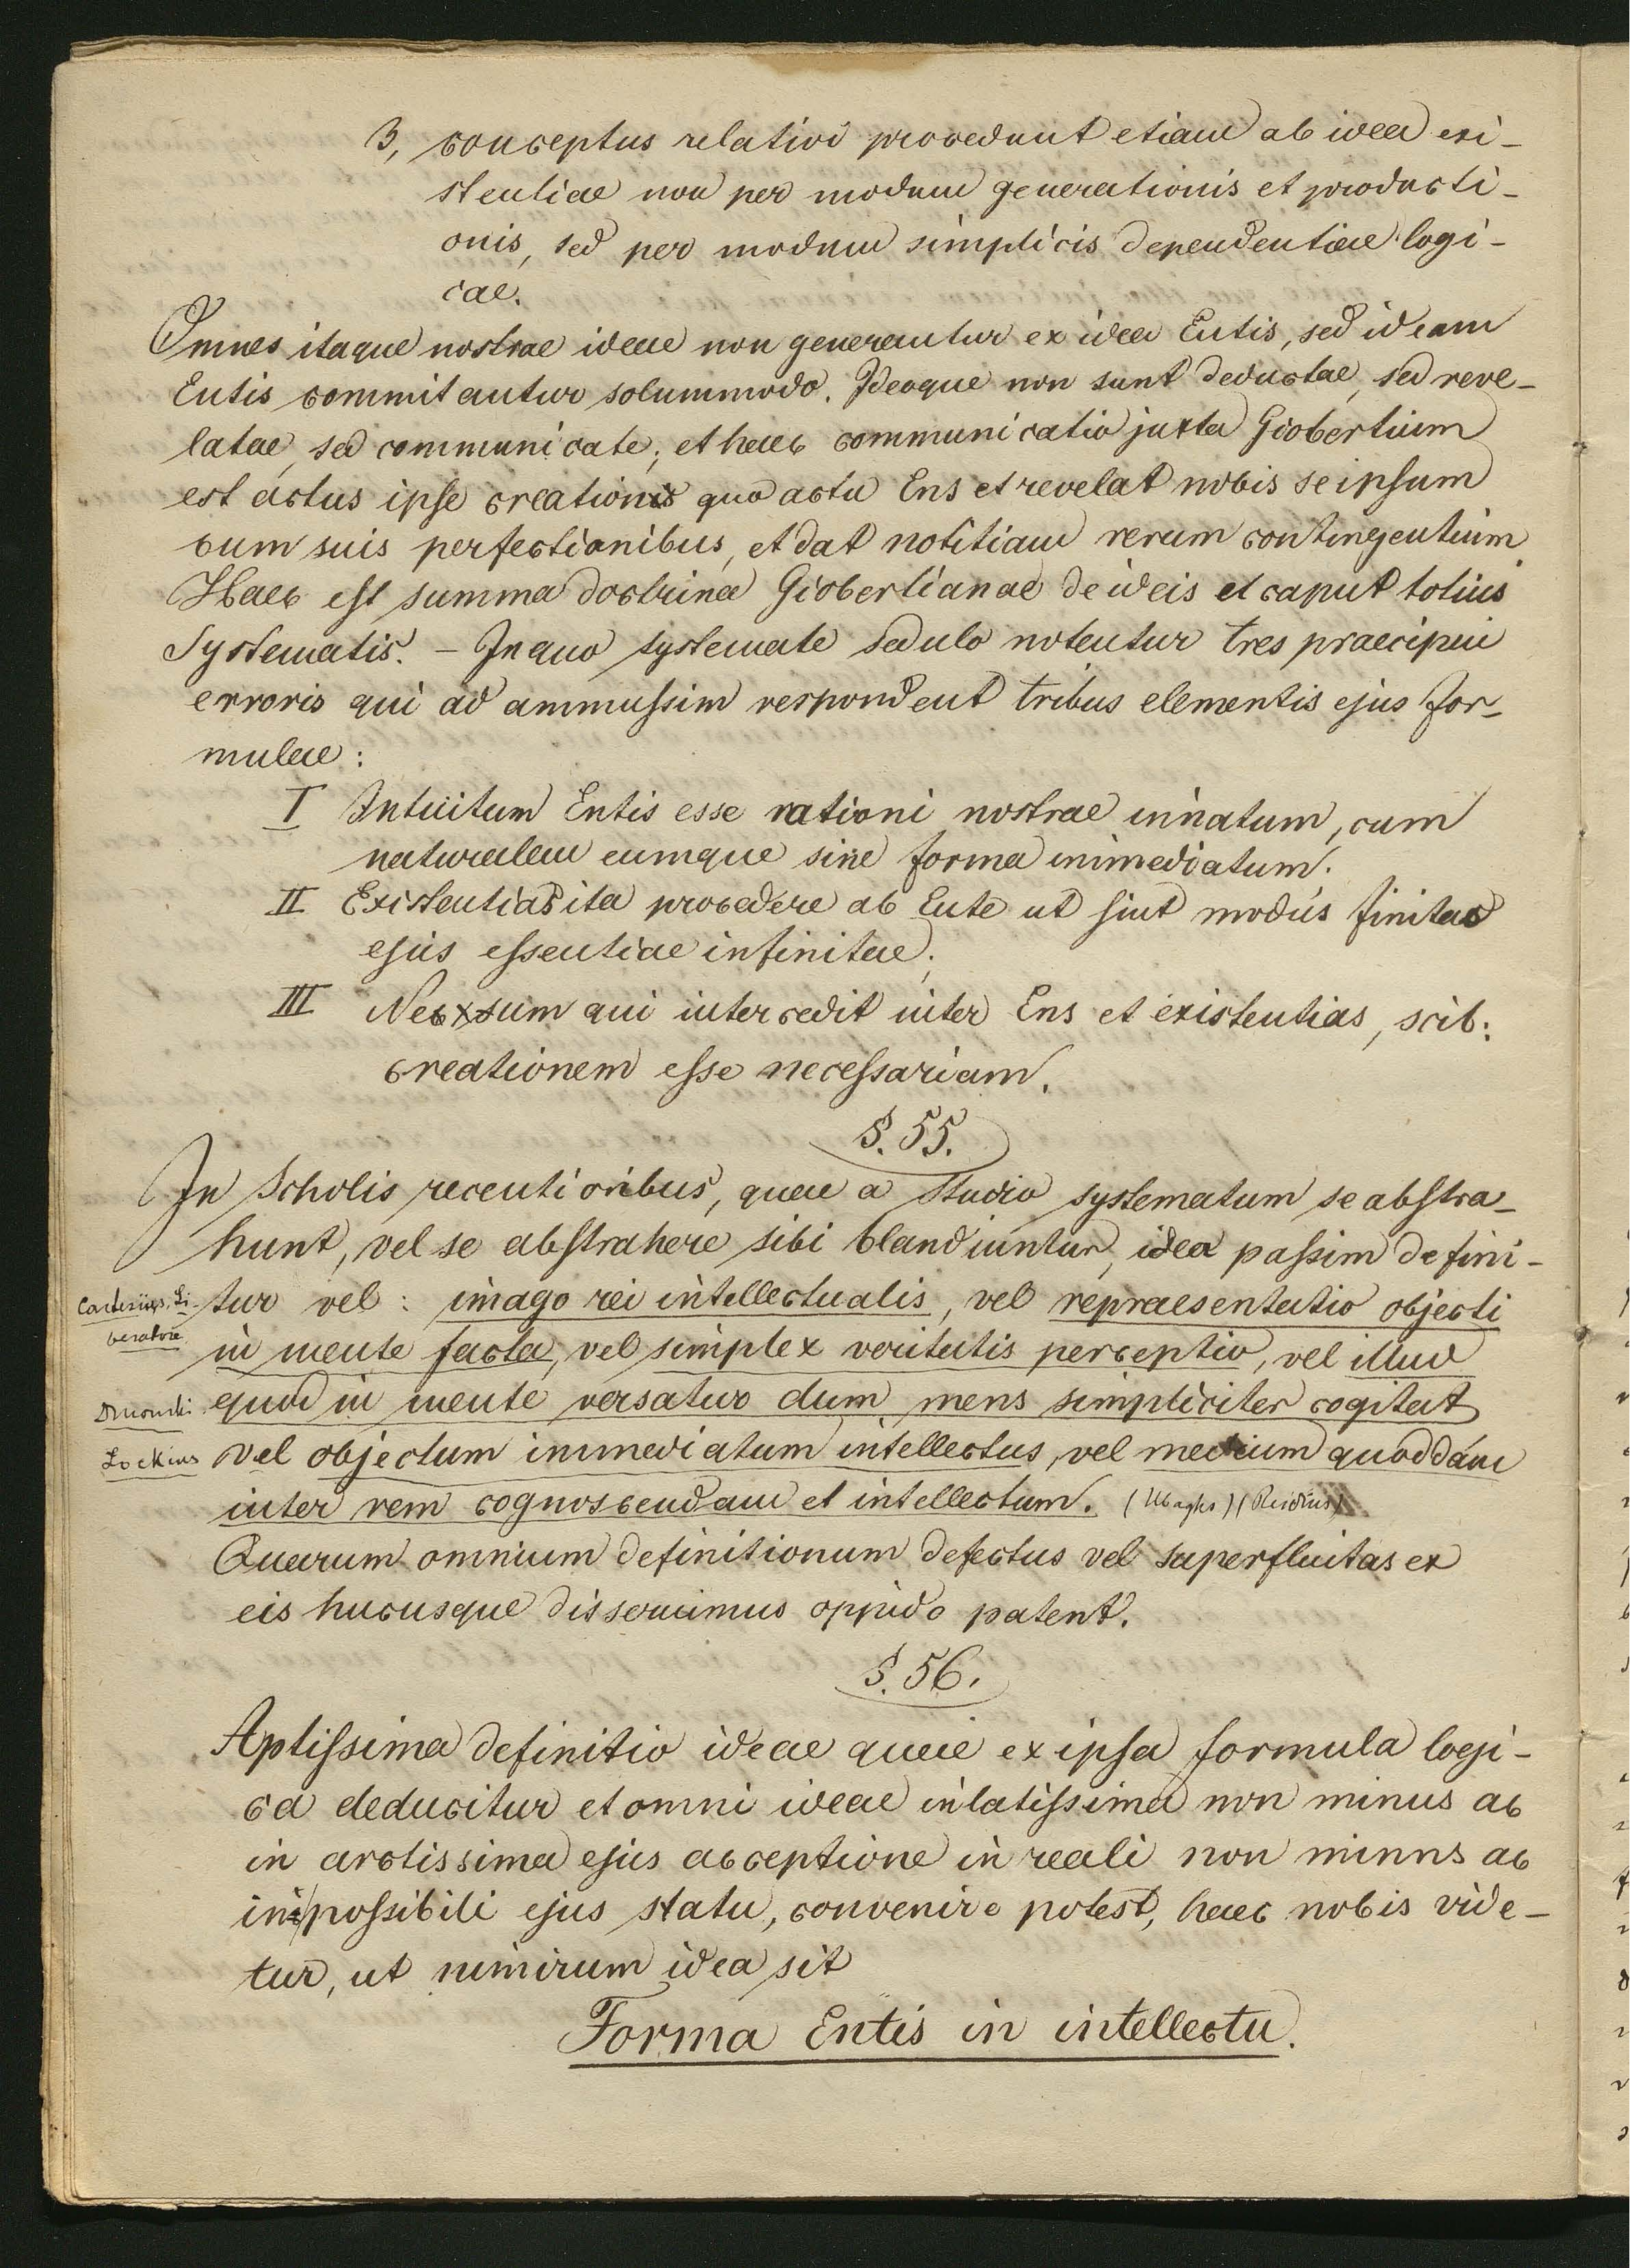 3, conceptus relativi procedunt etiam ab idea exi-
stentiae non per modum generationis et producti-
onis, sed per modum simplicis dependentiae logi-
cae.
Omnes itaque nostrae ideae non generantur ex idea Entis, sed ideam
Entis commitantur solummodo. Ideoque non sunt deductae, sed reve-
latae, sed communicate; et haec communicatio juxta Giobertium
est actus ipse creationis quo actu Ens et revelat nobis se ipsum
cum suis perfectionibus, et dat notitiam rerum contingentium
Haec est summa doctrina Giobertianae de ideis et caput totius
Systematis. – In quo systemate sedulo notentur tres praecipui
erroris qui ad ammussim respondent tribus elementis ejus for-
mulae:
I Intuitum Entis esse rationi nostrae innatum, cum
naturalem eumque sine forma immediatum.
II Existentias ita procedere ab Ente ut sint modus finitae
ejus essentiae infinitae;
III Nexsum qui intercedit inter Ens et existentias, scib:
creationem esse necessariam.
§. 55.
In Scholis recentioribus, quae a studio systematum se abstra-
hunt, vel se abstrahere sibi blandiuntur, idea passim defini-
Cartesius, Li- tur vel: imago rei intellectualis, vel repraesentatio objecti
beratore in mente facta, vel simplex veritatis perceptio, vel illud
Dmouski quod in mente versatur dum mens simpliciter cogitat
Lockius vel objectum immediatum intellectus, vel medium quoddam
inter rem cognoscendam et intellectum. (Ubaghs) (Reidius)
Quarum omnium definitionum defectus vel superfluitas ex
eis hucusque disseruimus oppido patent.
§. 56.
Aptissima definitio ideae quae ex ipsa formula logi-
ca deducitur et omni ideae in latissima non minus ac
in arctissima ejus acceptione in reali non minus ac
in possibili ejus statu, convenire potest, haec nobis vide-
tur, ut nimirum idea sit
Forma Entis in intellectu.